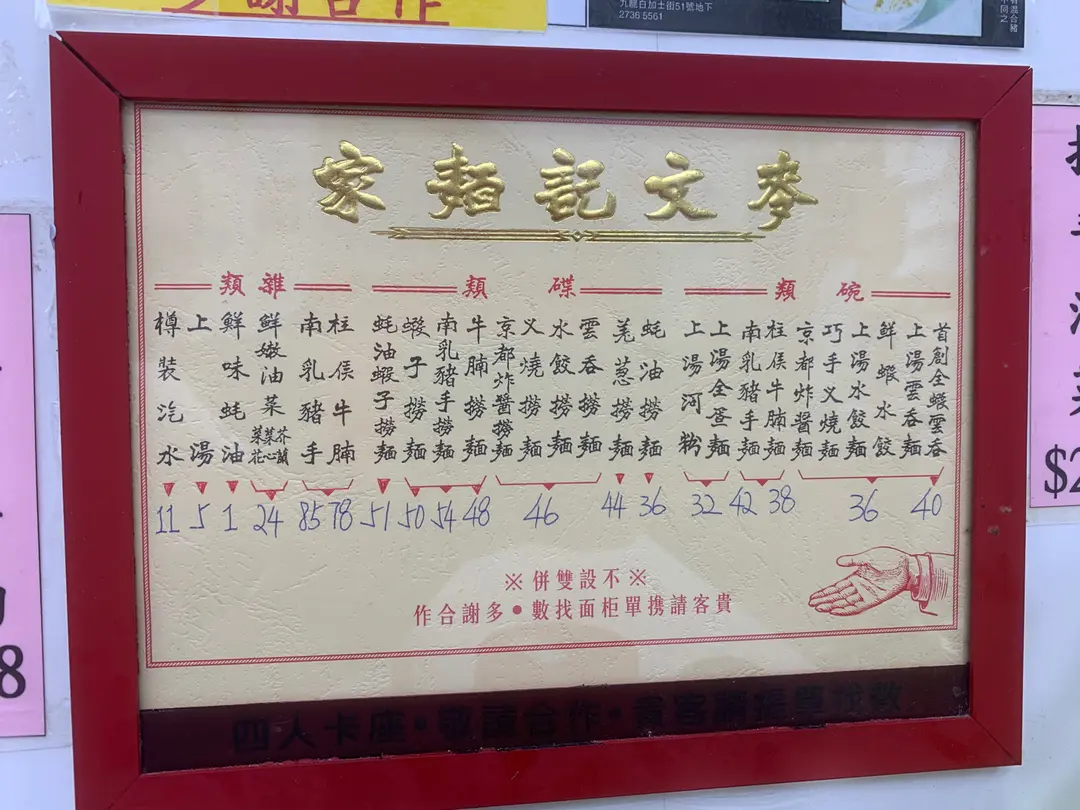 多謝合作
九龍白加士街51號地下
2736 5561
麥文記麵家
碗類
首創全蝦雲吞
上湯雲吞麵
40
鮮蝦水餃
上湯水餃麵
巧手叉燒麵
京都炸醬麵
36
柱侯牛腩麵
38
南乳豬手麵
42
上湯全蛋麵
上湯河粉
32
碟類
蚝油撈麵
36
羗葱撈麵
44
雲吞撈麵
水餃撈麵
叉燒撈麵
京都炸醬撈麵
46
牛腩撈麵
48
南乳豬手撈麵
54
蝦子撈麵
50
蚝油蝦子撈麵
51
雜類
柱侯牛腩
78
南乳豬手
85
鮮嫩油菜
芥蘭
菜心
24
鮮味蚝油
1
上湯
5
樽裝汽水
11
※不設雙併※
貴客請携單柜面找數●多謝合作
四人卡座·敬請合作·貴客請携單找數
$2
8